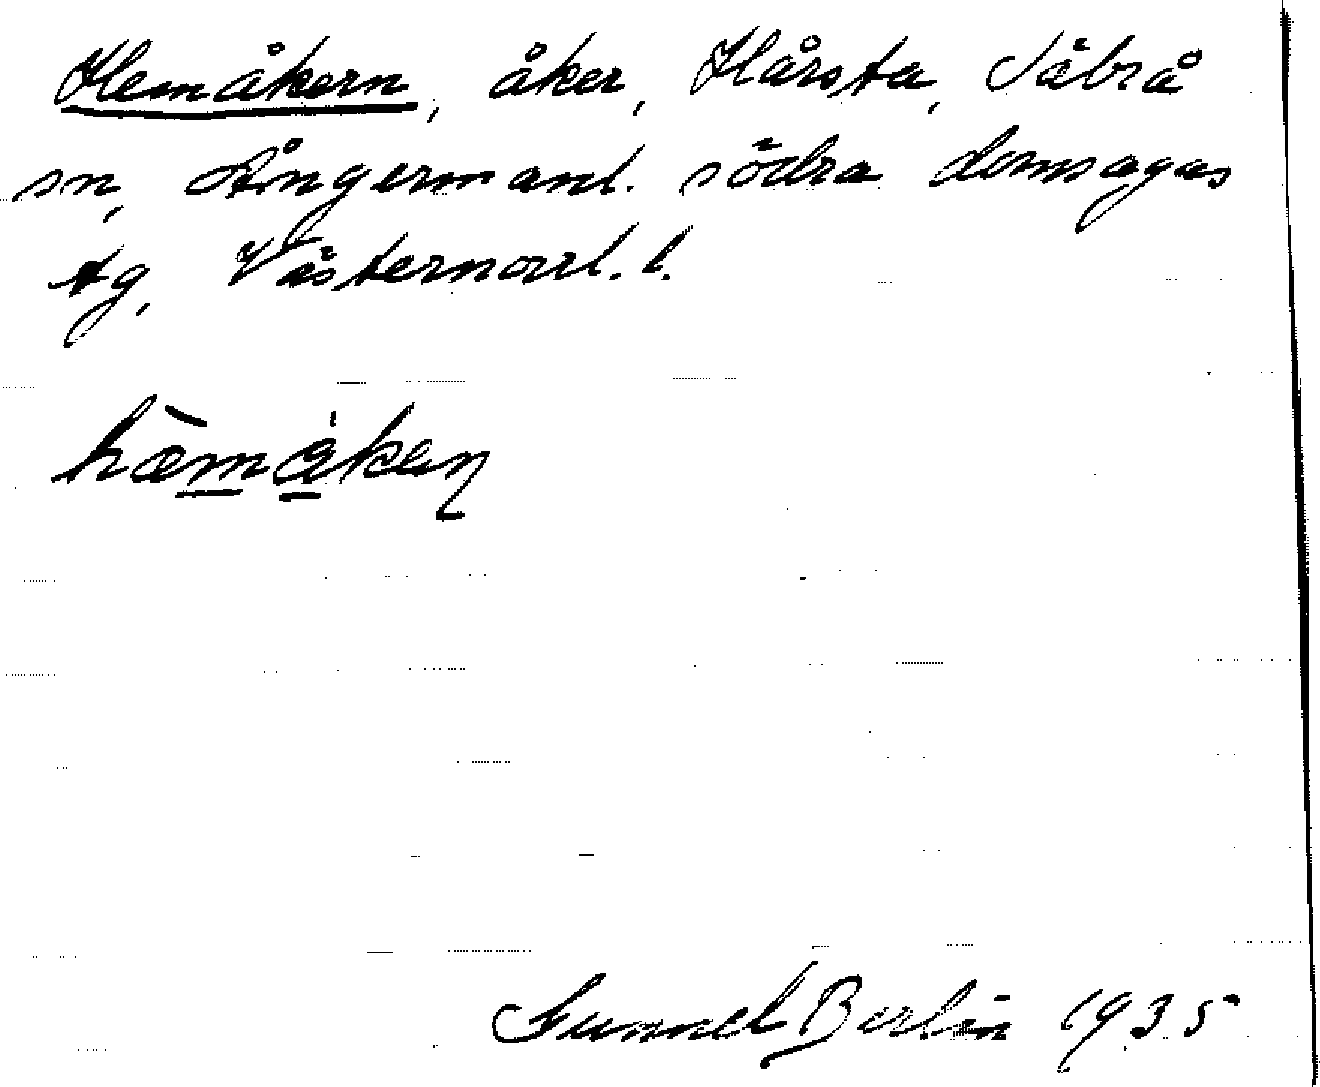 Hemåkern, åker, Hårsta, Säbrå
sn, Ångermanl. södra domsagas
tg, Västernorrl. l.
hæ̀måken
Gunnel Berlin 1935